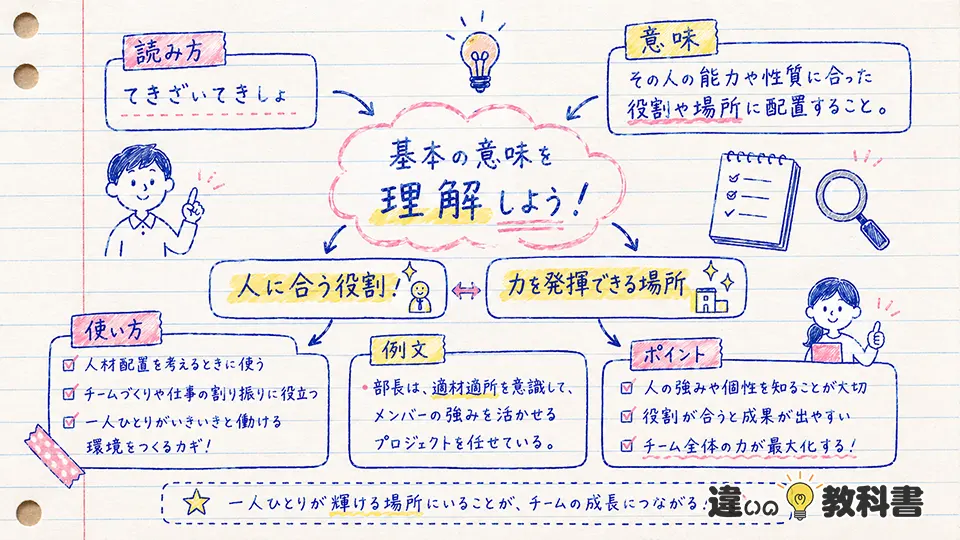 読み方
てきざいてきしょ
意味
その人の能力や性質に合った
役割や場所に配置すること。
基本の意味を
理解しよう!
人に合う役割!
力を発揮できる場所
使い方
人材配置を考えるときに使う
チームづくりや仕事の割り振りに役立つ
一人ひとりがいきいきと働ける
環境をつくるカギ!
例文
・部長は、適材適所を意識して、
メンバーの強みを活かせる
プロジェクトを任せている。
ポイント
人の強みや個性を知ることが大切
役割が合うと成果が出やすい
チーム全体の力が最大化する!
一人ひとりが輝ける場所にいることが、チームの成長につながる!
違いの教科書